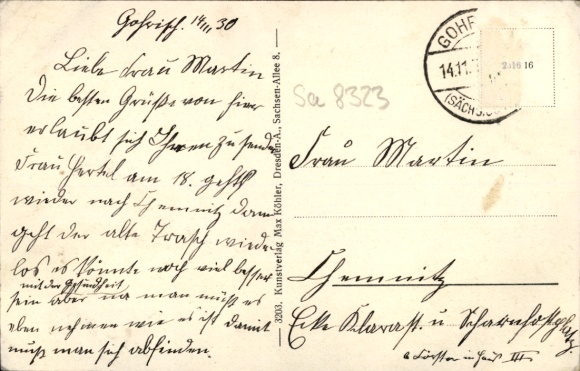 Gohrisch. 14/11 30
Liebe Frau Martin
Die besten Grüße von hier
erlaubt sich Ihnen zu senden
Frau Hertel am 18. gehts
wieder nach Chemnitz dann
geht der alte Trasch wieder
los es könnte noch viel besser
mit der Gesundheit
sein aber na man muß es
eben nehmen wie es ist damit
muß man sich abfinden.
3203. Kunstverlag Max Köhler, Dresden-A., Sachsen-Allee 8.
Sa 8323
GOHR
14.11.
(SÄCHS.
16
Frau Martin
Chemnitz
Ecke Klarast. u Scharnhostplatz.
b Förster im Haus III.